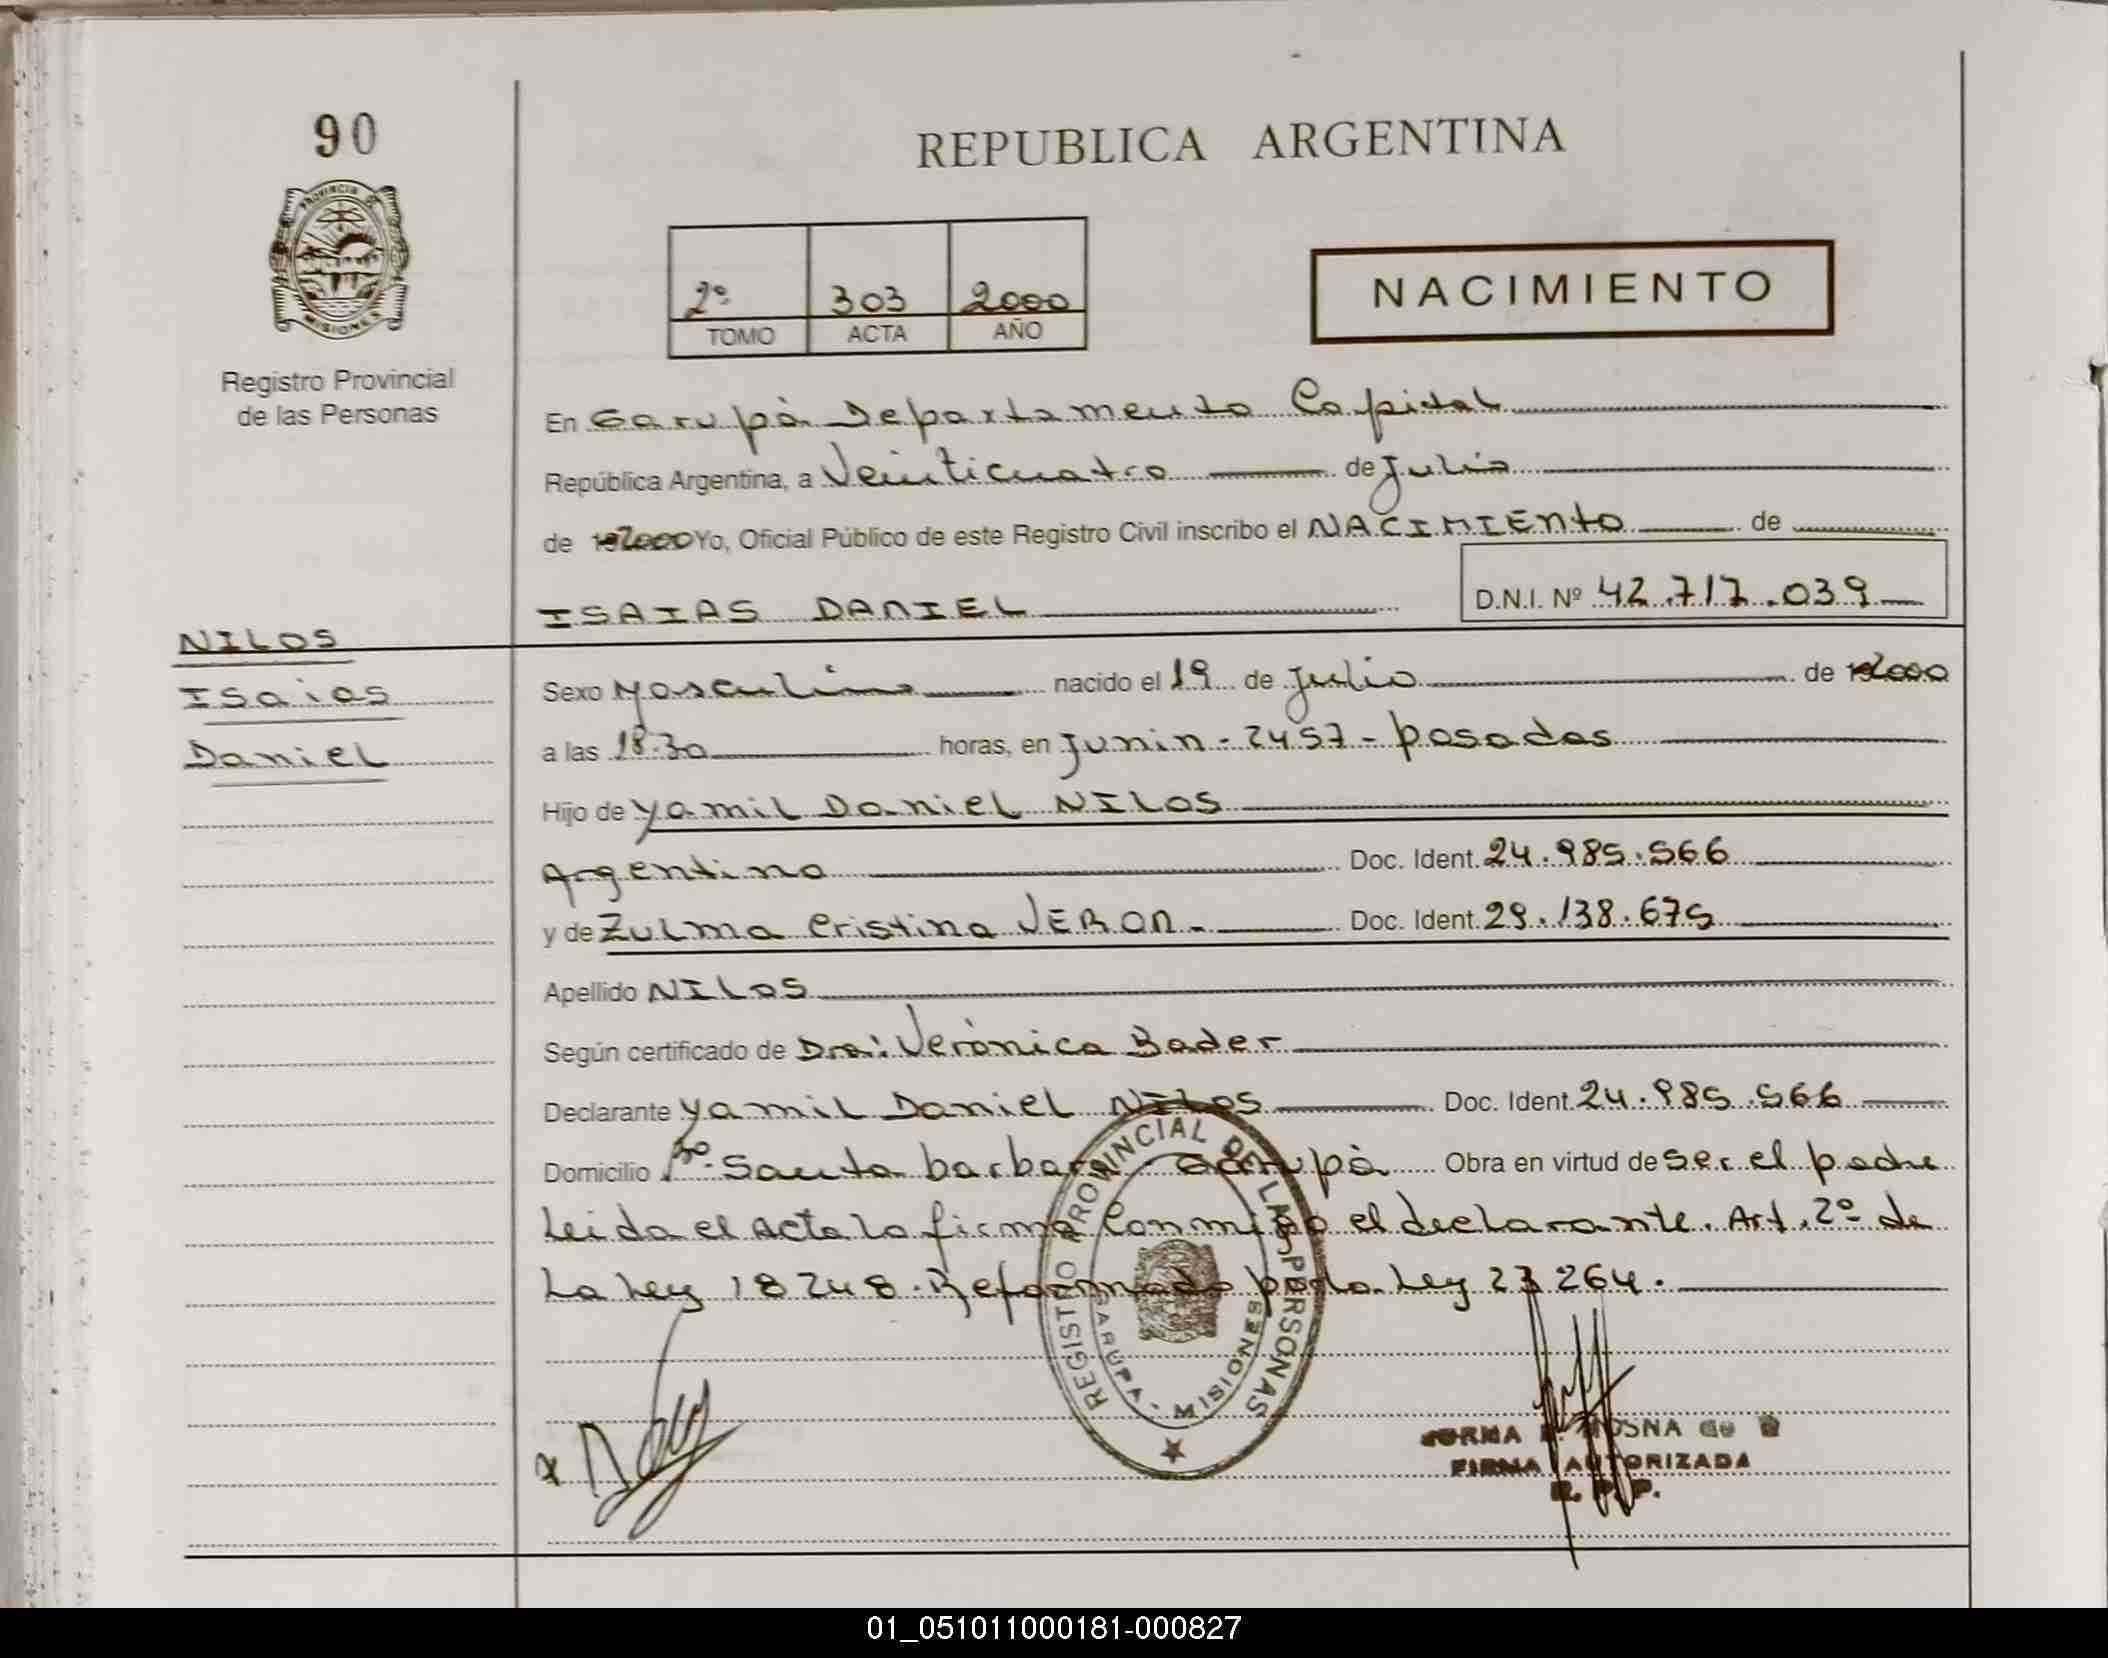 90
PROVINCIA DE
MISIONES
Registro Provincial
de las Personas
REPUBLICA ARGENTINA
2º 303 2000
TOMO ACTA AÑO
NACIMIENTO
En Garupà Departamento Capital
República Argentina, a Veinticuatro de Julio
de 192000 Yo, Oficial Público de este Registro Civil inscribo el NACIMIENTO de
ISAIAS DANIEL D.N.I. Nº 42.717.039
NILOS
Isaias
Daniel
Sexo Masculino nacido el 19 de Julio de 192000
a las 18.30 horas, en Junin - 2457 - posadas
Hijo de Yamil Daniel NILOS
Argentino Doc. Ident. 24.985.566
y de Zulma Cristina VERON.- Doc. Ident. 29.138.675
Apellido NILOS
Según certificado de Dra: Verònica Bader
Declarante Yamil Daniel NILOS Doc. Ident. 24.985.566
Domicilio Bº. Santa barbara Garupà Obra en virtud de ser el padre
Leida el Acta La firma Conmigo el declarante. Art. 2º de
La Ley 18248. Reformado por la Ley 23264.
REGISTRO PROVINCIAL DE LAS PERSONAS
GARUPA - MISIONES
FIRMA AUTORIZADA
R. P. P.
01_051011000181-000827